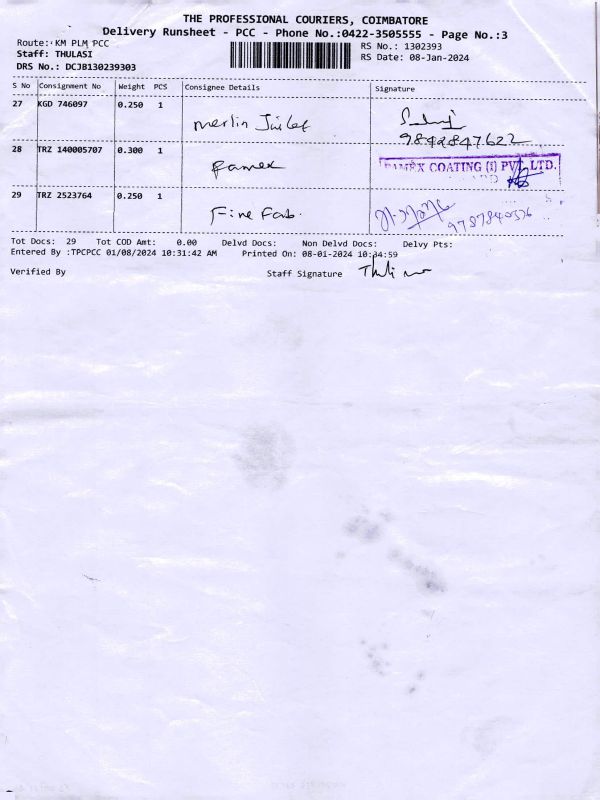 THE PROFESSIONAL COURIERS, COIMBATORE
Delivery Runsheet - PCC - Phone No.:0422-3505555 - Page No.:3
Route: KM PLM PCC
RS No.: 1302393
Staff: THULASI
RS Date: 08-Jan-2024
DRS No.: DCJB130239303
S No Consignment No Weight PCS Consignee Details Signature
27 KGD 746097 0.250 1 Merlin
9842847622
28 TRZ 140005707 0.300 1 Ramex
RAMEX COATING (I) PVT. LTD.
29 TRZ 2523764 0.250 1 Fine Fab.
9787840536
Tot Docs: 29 Tot COD Amt: 0.00 Delvd Docs: Non Delvd Docs: Delvy Pts:
Entered By :TPCPCC 01/08/2024 10:31:42 AM Printed On: 08-01-2024 10:34:59
Verified By Staff Signature